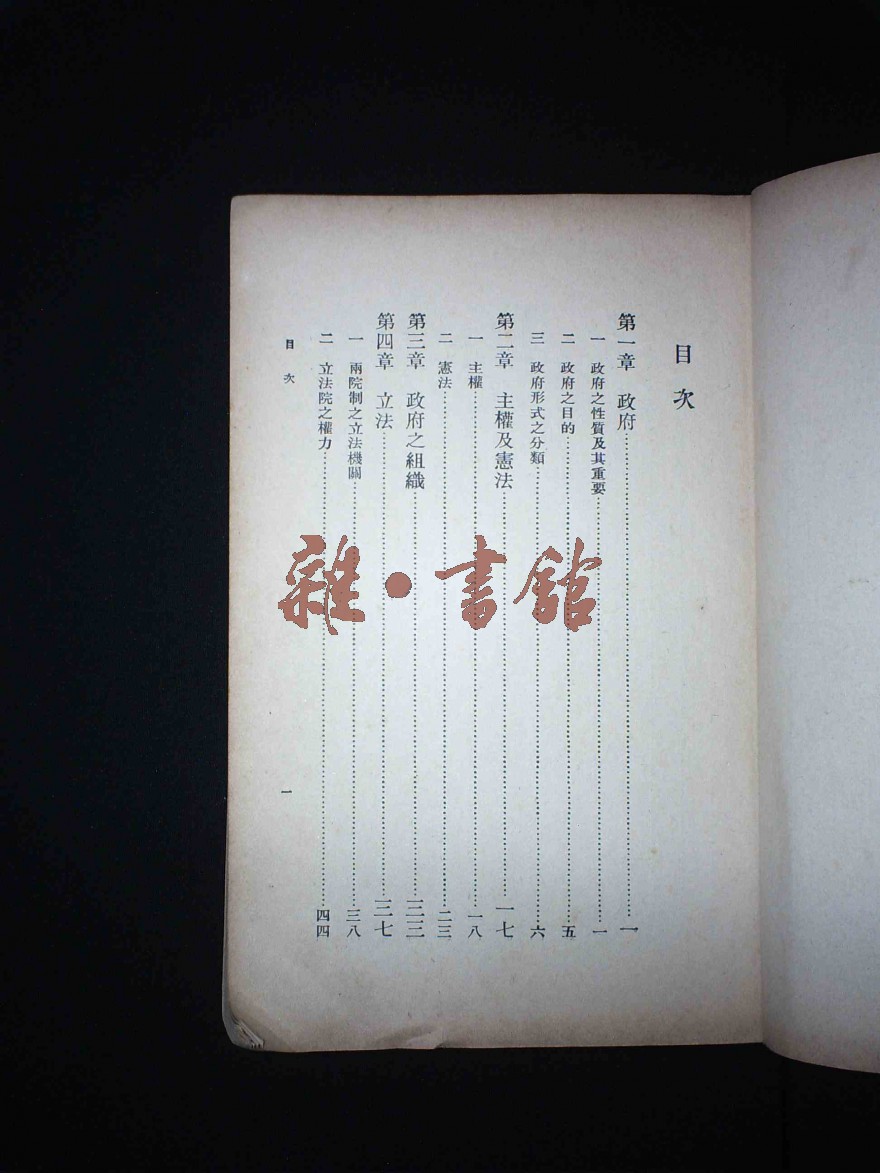 目次
第一章　政府……一
一　政府之性質及其重要……一
二　政府之目的……五
三　政府形式之分類……六
第二章　主權及憲法……一七
一　主權……一八
二　憲法……二三
第三章　政府之組織……三三
第四章　立法……三七
一　兩院制之立法機關……三八
二　立法院之權力……四四
目次　一
雜·書館